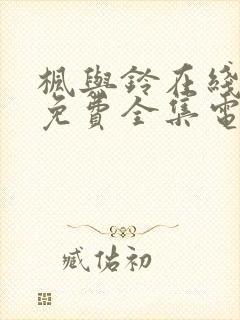 枫與鈴在綫
免費全集電
臧估初